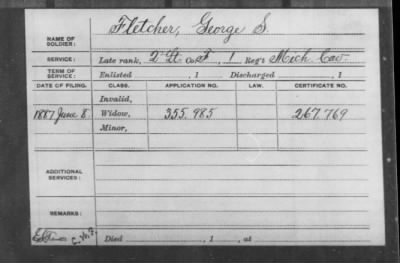 Fletcher, George S.
NAME OF SOLDIER:
SERVICE: Late rank, 2 Lt. Co. F, 1 Reg't Mich Cav.
TERM OF SERVICE: Enlisted , 1 Discharged , 1
DATE OF FILING. CLASS. APPLICATION NO. LAW. CERTIFICATE NO.
Invalid,
1887 June 8. Widow, 355.985 267.769
Minor,
ADDITIONAL SERVICES:
REMARKS:
C.W.F.
Died , 1 , at